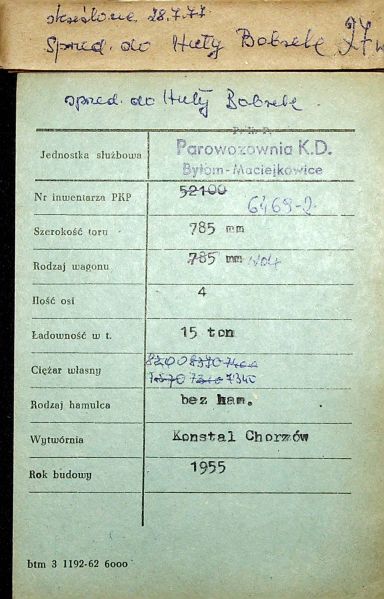 skreślone 28.7.77
Spred. do Huty Bobrek 27
spred. do Huty Bobrek
Jednostka służbowa
Parowozownia K.D.
Bytom-Maciejkowice
Nr inwentarza PKP 52100 6469-2
Szerokość toru 785 mm
Rodzaj wagonu 785 mm Wdx
Ilość osi 4
Ładowność w t. 15 ton
Ciężar własny 8200 8370 7400
7370 7310 7340
Rodzaj hamulca bez ham.
Wytwórnia Konstal Chorzów
Rok budowy 1955
btm 3 1192-62 6000